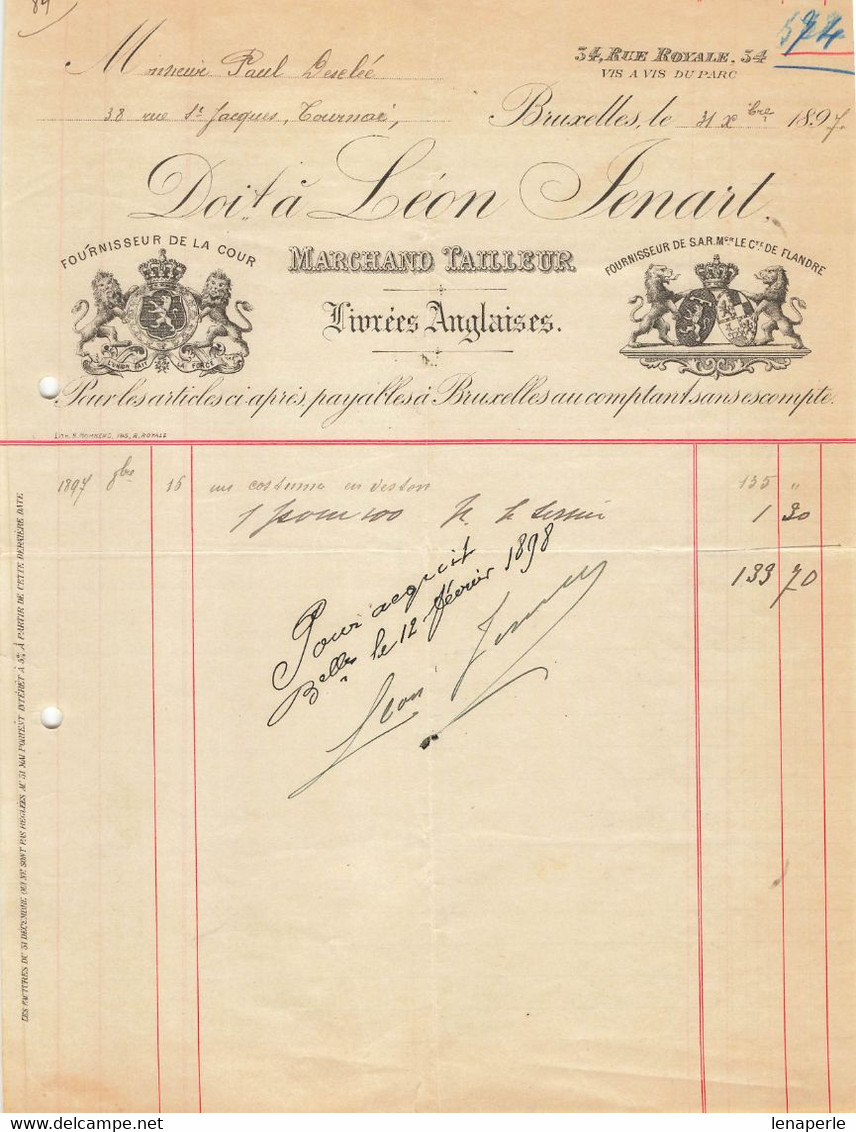 84
574
Monsieur Paul Desclée
38 rue St Jacques, Tournai,
34, RUE ROYALE, 34
VIS A VIS DU PARC
Bruxelles, le 31 Xbre 1897.
Doit à Léon Jenart.
FOURNISSEUR DE LA COUR
MARCHAND TAILLEUR
FOURNISSEUR DE S.A.R. MGR LE CTE DE FLANDRE
Livrées Anglaises.
L'UNION FAIT LA FORCE
Pour les articles ci-après, payables à Bruxelles au comptant sans escompte.
1897 8bre 16 un costume en veston 135 "
1 pour 100 1 30
133 70
Pour acquit
Belles le 12 février 1898
Léon Jenart
LES FACTURES DU 31 DÉCEMBRE QUI NE SONT PAS RÉGLÉES AU 31 MAI PORTENT INTÉRÊT À 5% À PARTIR DE CETTE DERNIÈRE DATE
lenaperle